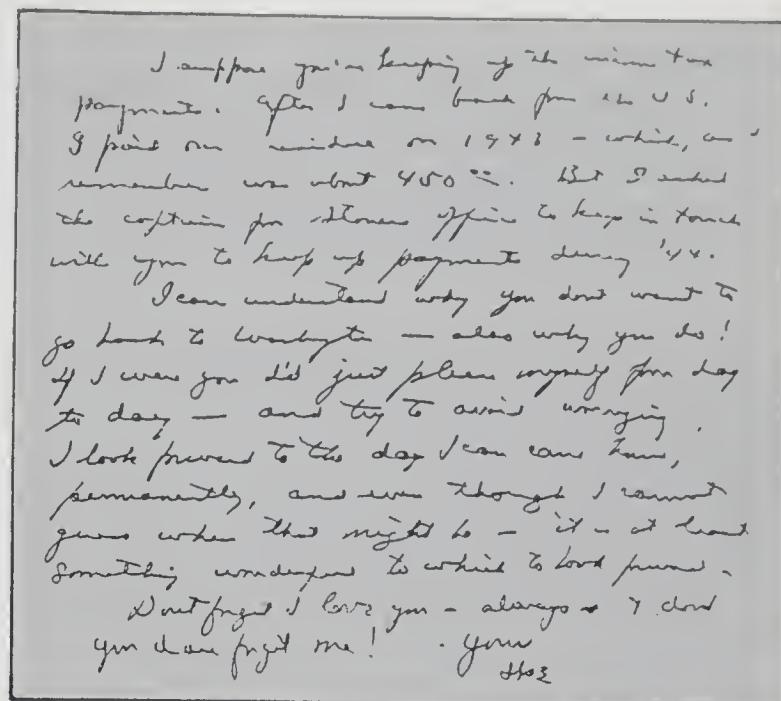 I suppose you're keeping up the income tax
payments. After I came back from the U.S.
I paid our residue on 1943 – which, as I
remember was about 450⁰⁰. But I asked
the captain from Stoners office to keep in touch
with you to keep up payments during '44.
I can understand why you dont want to
go back to Washington — also why you do!
If I were you I'd just please myself from day
to day — and try to avoid worrying.
I look forward to the day I can come home,
permanently, and even though I cannot
guess when that might be – it is at least
something wonderful to which to look forward.
Dont forget I love you – always – & dont
you dare forget me! . Your